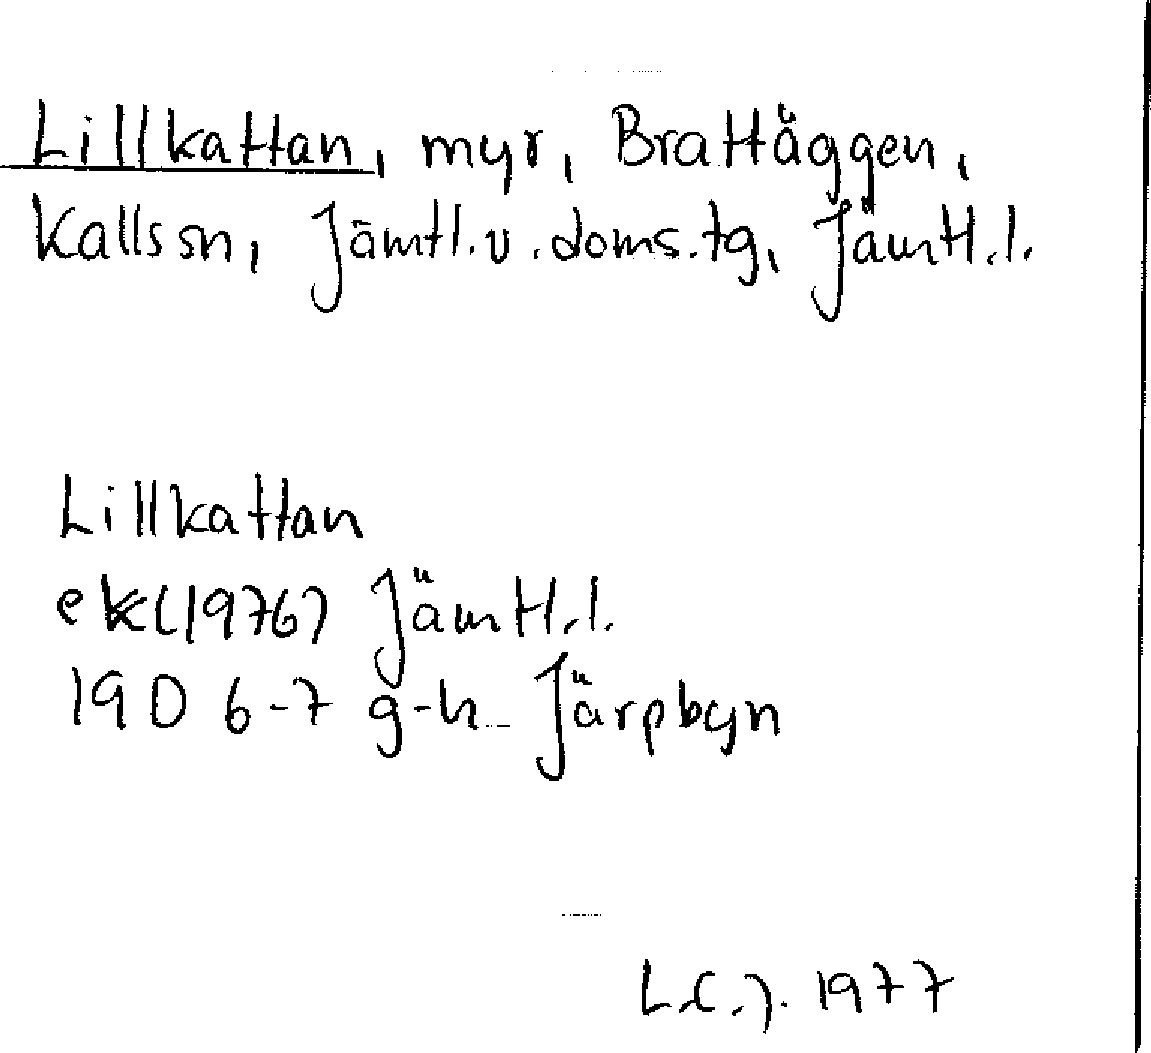 Lillkattan, myr, Brattäggen,
Kalls sn, Jämtl.v.doms.tg, Jämtl.l.
Lillkattan
ek(1976) Jämtl.l.
19D 6-7 g-h Järpbyn
L.C.J. 1977